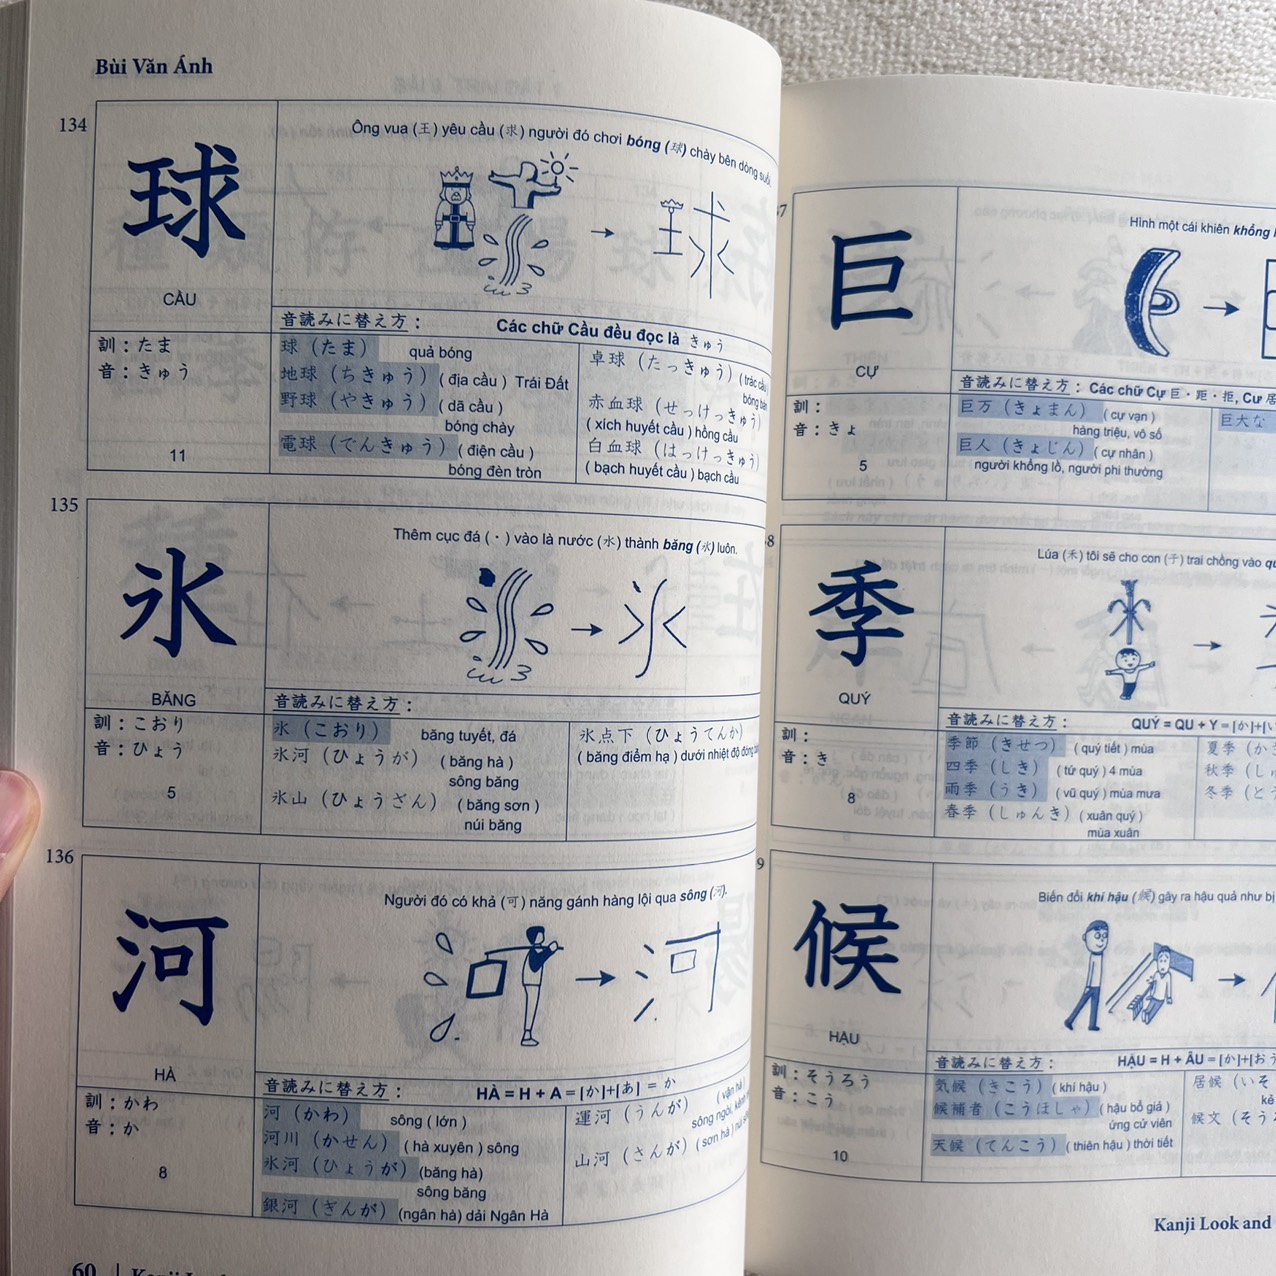 Bùi Văn Ánh
134
球
CẦU
Ông vua (王) yêu cầu (求) người đó chơi bóng (球) chày bên dòng suối.
音読みに替え方： Các chữ Cầu đều đọc là きゅう
訓：たま
音：きゅう
11
球（たま） quả bóng
地球（ちきゅう） ( địa cầu ) Trái Đất
野球（やきゅう） ( dã cầu )
bóng chày
電球（でんきゅう） ( điện cầu )
bóng đèn tròn
卓球（たっきゅう） ( trác cầu
bóng bàn
赤血球（せっけっきゅう）
( xích huyết cầu ) hồng cầu
白血球（はっけっきゅう）
( bạch huyết cầu ) bạch cầu
135
氷
BĂNG
Thêm cục đá (・) vào là nước (水) thành băng (氷) luôn.
音読みに替え方：
訓：こおり
音：ひょう
5
氷（こおり） băng tuyết, đá
氷河（ひょうが） ( băng hà )
sông băng
氷山（ひょうざん） ( băng sơn )
núi băng
氷点下（ひょうてんか）
( băng điểm hạ ) dưới nhiệt độ đóng
136
河
HÀ
Người đó có khả (可) năng gánh hàng lội qua sông (河).
音読みに替え方： HÀ = H + A = |か|+|あ| = か
訓：かわ
音：か
8
河（かわ） sông ( lớn )
河川（かせん） ( hà xuyên ) sông
氷河（ひょうが） (băng hà)
sông băng
銀河（ぎんが） (ngân hà) dải Ngân Hà
運河（うんが） ( vận hà )
sông ngòi,
山河（さんが） ( sơn hà )
60 |
巨
CỰ
Hình một cái khiên khổng
音読みに替え方： Các chữ Cự 巨・距・拒, Cư 居
訓：
音：きょ
5
巨万（きょまん） ( cự vạn )
hàng triệu, vô số
巨人（きょじん） ( cự nhân )
người khổng lồ, người phi thường
巨大な
8
季
QUÝ
Lúa (禾) tôi sẽ cho con (子) trai chồng vào
音読みに替え方： QUÝ = QU + Y =
訓：
音：き
8
季節（きせつ） ( quý tiết ) mùa
四季（しき） ( tứ quý ) 4 mùa
雨季（うき） ( vũ quý ) mùa mưa
春季（しゅんき） ( xuân quý )
mùa xuân
夏季（か
秋季（しゅ
冬季（と
9
候
HẬU
Biến đổi khí hậu (候) gây ra hậu quả như bị
音読みに替え方： HẬU = H + ÂU = |か|+|おう
訓：そうろう
音：こう
10
気候（きこう） (khí hậu )
候補者（こうほしゃ） ( hậu bổ giả )
ứng cử viên
天候（てんこう） ( thiên hậu ) thời tiết
居候（いそ
候文（そう
Kanji Look and